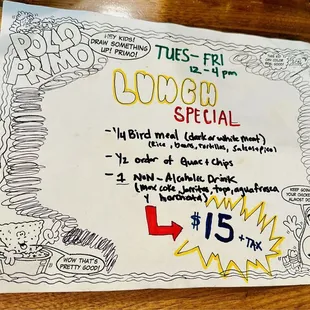 POLLO
PRIMO
HEY KIDS!
DRAW SOMETHING
UP! PRIMO!
TUES-FRI
12-4 pm
LUNCH
SPECIAL
- 1/4 Bird meal (dark or white meat)
(Rice, beans, tortillas, salsa + pico)
- 1/2 order of Guac + Chips
- 1 NON-Alcoholic Drink
(mex coke, jarritos, topo, agua fresca
y horchata)
$15 + TAX
WOW THAT'S
PRETTY GOOD!
KEEP GOING
YOUR
ALMOST DONE